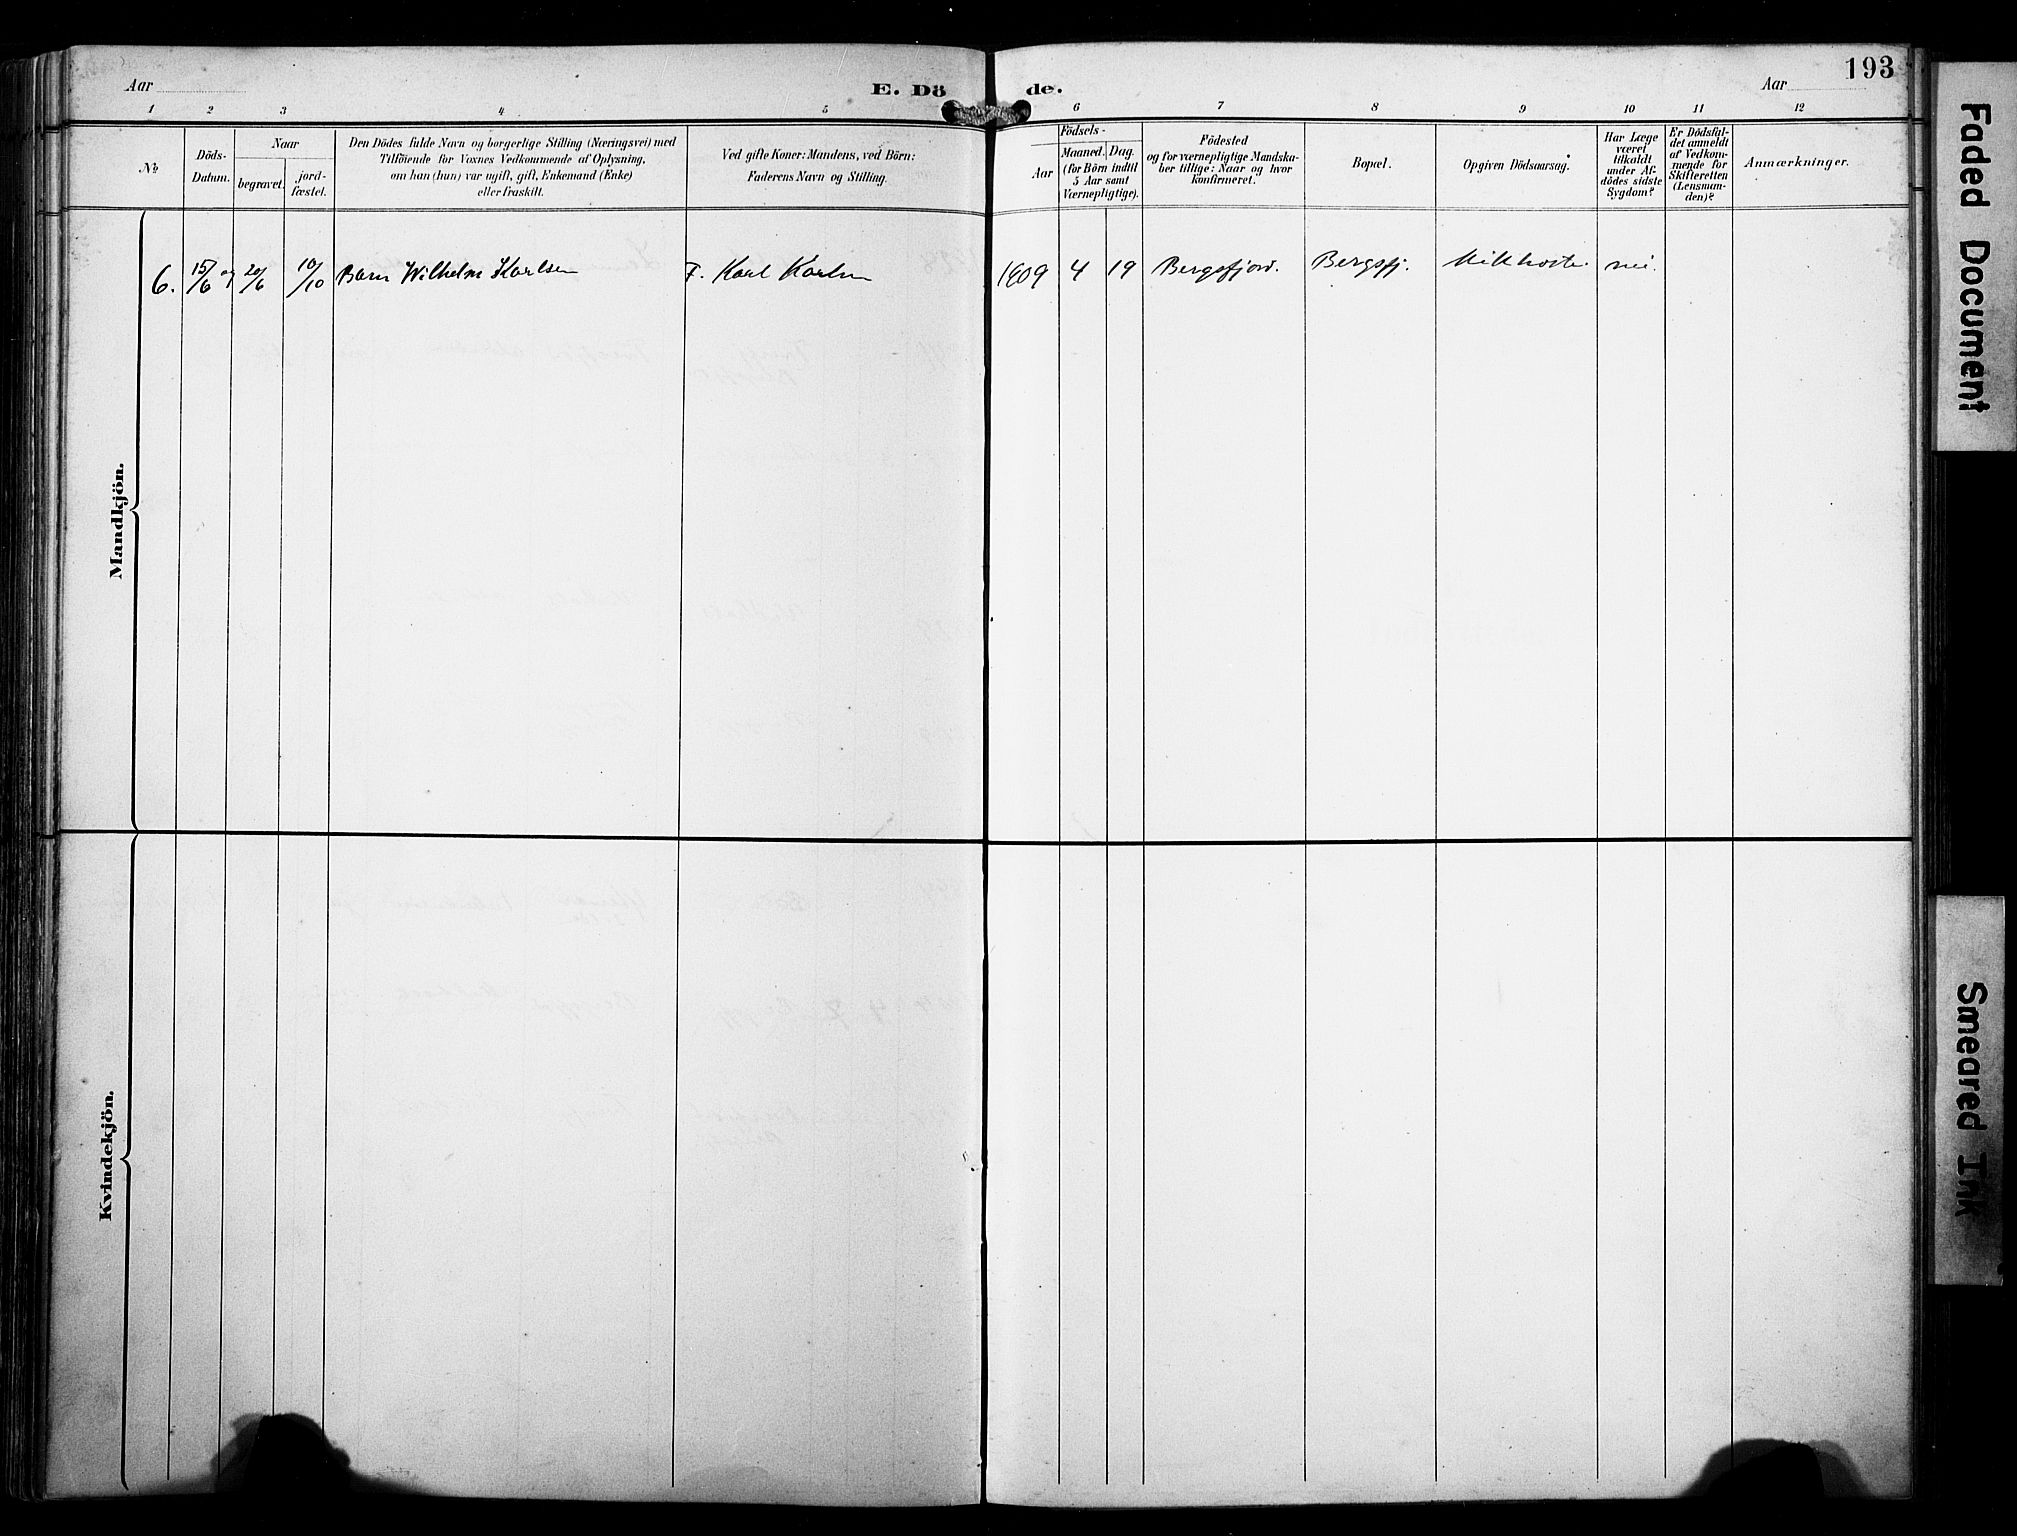 193
Aar
E. Dö de.
Aar
1 2 3 4 5 6 7 8 9 10 11 12
№
Döds-
Datum.
Naar
begravet.
jord-
fæstet.
Den Dödes fulde Navn og borgerlige Stilling (Næringsvei) med
Tilföiende for Voxnes Vedkommende af Oplysning,
om han (hun) var ugift, gift, Enkemand (Enke)
eller fraskilt.
Ved gifte Koner: Mandens, ved Börn:
Faderens Navn og Stilling.
Födsels-
Aar
Maaned. Dag.
(for Börn indtil
5 Aar samt
Værnepligtige).
Födested
og for værnepligtige Mandska-
ber tillige: Naar og hvor
konfirmeret.
Bopæl.
Opgiven Dödsaarsag.
Har Læge
været
tilkaldt
under Af-
dödes sidste
Sygdom?
Er Dödsfal-
det anmeldt
af Vedkom-
mende for
Skifteretten
(Lensman-
den)?
Anmærkninger.
Mandkjön.
6. 15/6 og 20/6 10/10 Barn Wilhelm Karlsen F. Karl Karlsen 1909 4 19 Bergsfjord. Bergsfj. Kikhoste. nei.
Kvindekjön.
Faded Document
Smeared Ink